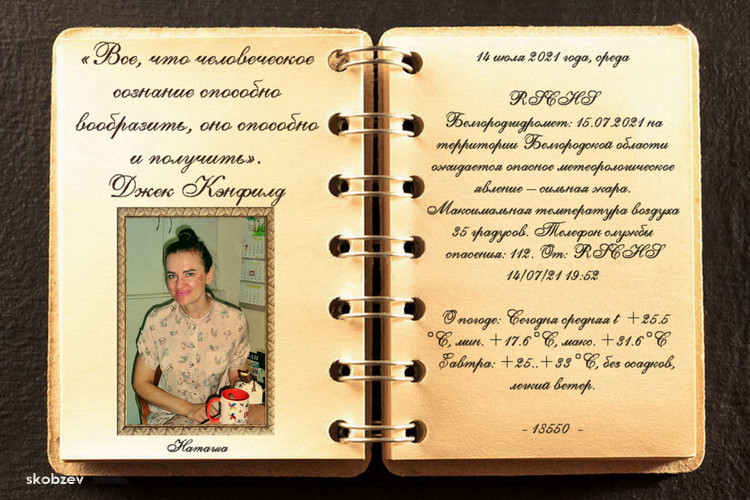 «Все, что человеческое
сознание способно
вообразить, оно способно
и получить».
Джек Кэнфилд
Наташа
14 июля 2021 года, среда
RSCHS
Белгородгидромет: 15.07.2021 на
территории Белгородской области
ожидается опасное метеорологическое
явление – сильная жара.
Максимальная температура воздуха
35 градусов. Телефон службы
спасения: 112. От: RSCHS
14/07/21 19:52
О погоде: Сегодня средняя t +25.5
°C, мин. +17.6°C, макс. +31.6°C
Завтра: +25..+33 °C, без осадков,
легкий ветер.
- 13550 -
skobzev